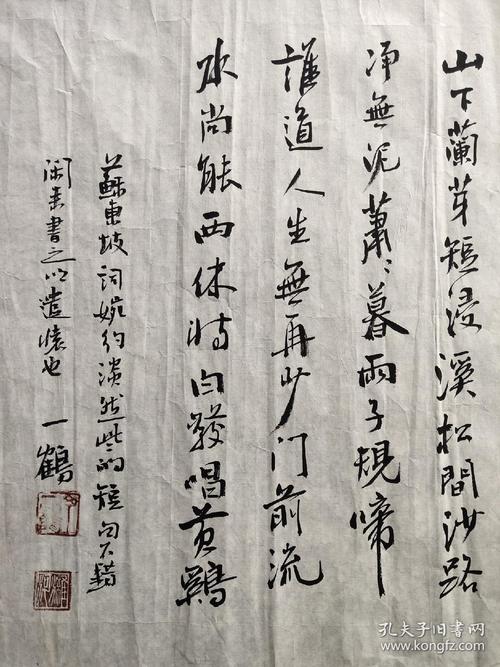 山下蘭芽短浸溪松間沙路
净無泥蕭〻暮雨子規啼
誰道人生無再少门前流
水尚能西休将白發唱黄鷄
蘇東坡词婉约淡然些的短句不錯
闲来書之以遣懷也 一鶴
孔夫子旧书网
www.kongfz.com